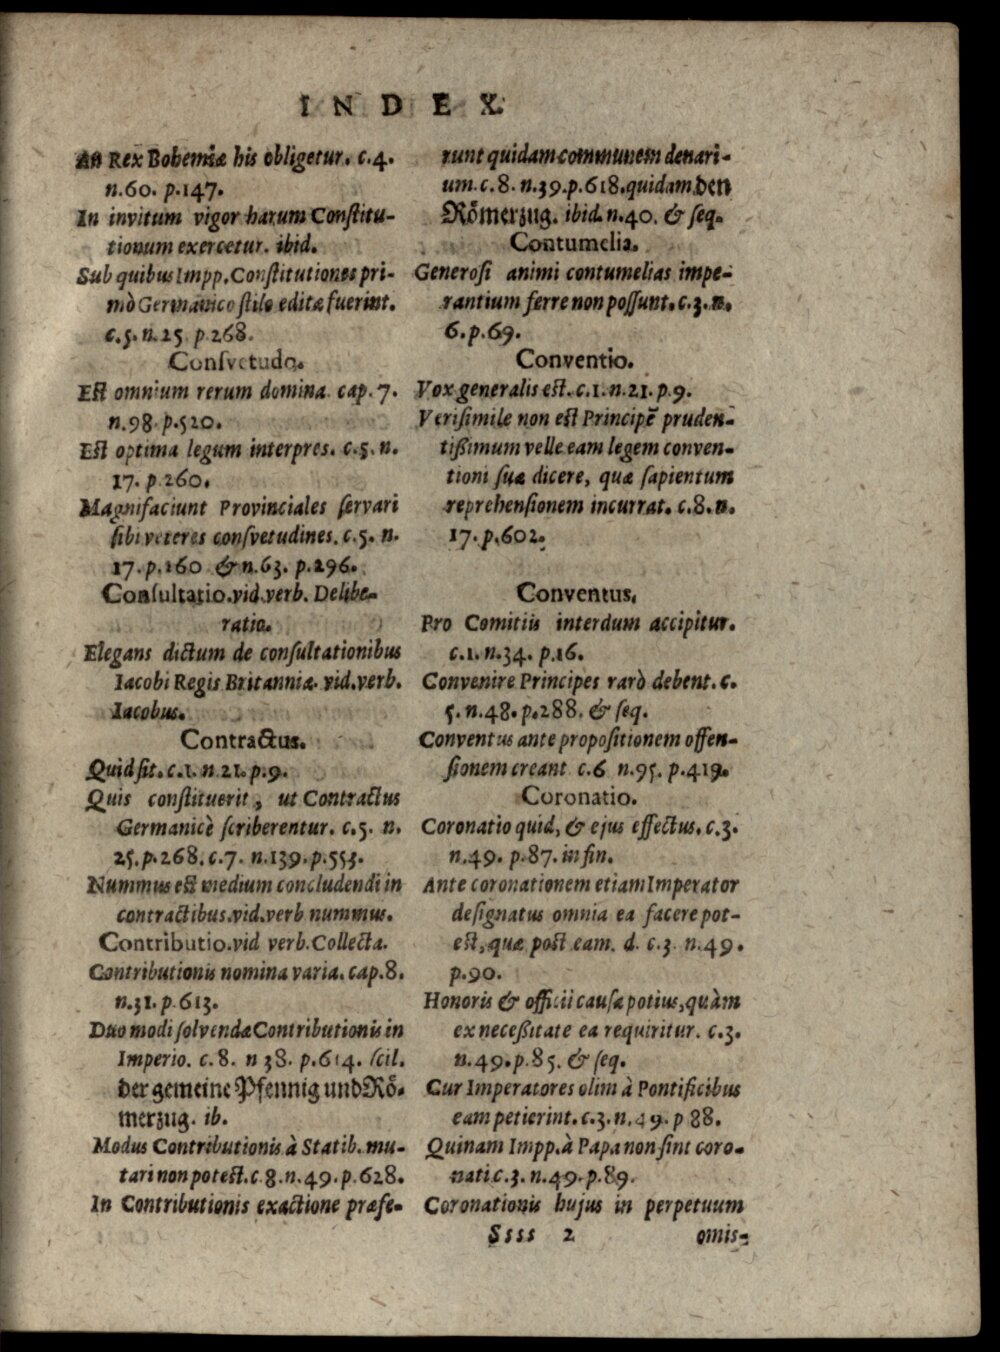 INDEX.
An Rex Bohemiæ his obligetur. c.4.
n.60. p.147.
In invitum vigor harum Conſtitu-
tionum exercetur. ibid.
Sub quibus Impp. Conſtitutiones pri-
mò Germanico ſtilo editæ fuerint.
c.5. n.25 p.268.
Conſvetudo.
Eſt omnium rerum domina. cap. 7.
n.98. p.520.
Eſt optima legum interpres. c.5. n.
17. p.260.
Magnifaciunt Provinciales ſervari
ſibi veteres conſvetudines. c.5. n.
17. p.260 & n.63. p.296.
Conſultatio. vid. verb. Delibe-
ratio.
Elegans dictum de conſultationibus
Iacobi Regis Britanniæ. vid. verb.
Iacobus.
Contractus.
Quid ſit. c.1. n.21. p.9.
Quis conſtituerit, ut Contractus
Germanicè ſcriberentur. c.5. n.
25. p.268. c.7. n.139. p.553.
Nummus eſt medium concludendi in
contractibus. vid. verb nummus.
Contributio. vid verb. Collecta.
Contributionis nomina varia. cap.8.
n.31. p 613.
Duo modi ſolvendæ Contributionis in
Imperio. c.8. n 38. p.614. ſcil.
der gemeine Pfennig und Rö-
merzug. ib.
Modus Contributionis à Statib. mu-
tari non poteſt. c 8. n.49. p.628.
In Contributionis exactione præfe-
runt quidam communem denari-
um. c.8. n.39. p.618. quidam den
Römerzug. ibid. n.40. & ſeq.
Contumelia.
Generoſi animi contumelias impe-
rantium ferre non poſſunt. c.3. n.
6. p.69.
Conventio.
Vox generalis eſt. c.1. n.21. p.9.
Veriſimile non eſt Principē pruden-
tißimum velle eam legem conven-
tioni ſuæ dicere, quæ ſapientum
reprehenſionem incurrat. c.8. n.
17. p.602.
Conventus.
Pro Comitiis interdum accipitur.
c.1. n.34. p.16.
Convenire Principes rarò debent. c.
5. n.48. p.288. & ſeq.
Conventus ante propoſitionem offen-
ſionem creant c.6 n.95. p.419.
Coronatio.
Coronatio quid, & ejus effectus. c.3.
n.49. p.87. in fin.
Ante coronationem etiam Imperator
deſignatus omnia ea facere pot-
eſt, quæ poſt eam. d. c.3. n.49.
p.90.
Honoris & officii cauſa potius, quàm
ex neceßitate ea requiritur. c.3.
n.49. p.85. & ſeq.
Cur Imperatores olim à Pontificibus
eam petierint. c.3. n.49. p 88.
Quinam Impp. à Papa non ſint coro-
nati c.3. n.49. p.89.
Coronationis hujus in perpetuum
Ssss 2 omis-